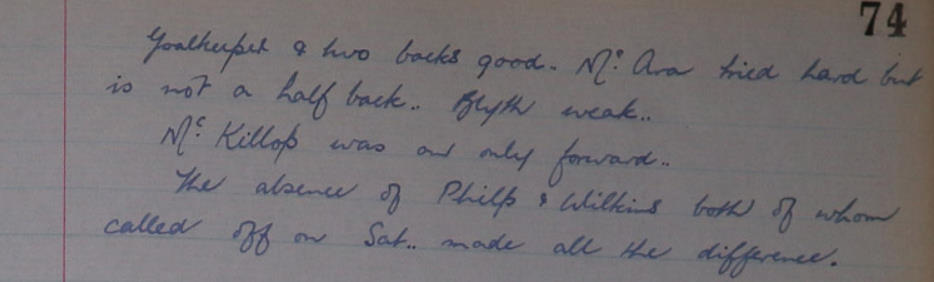 74
Goalkeeper & two backs good. Mc. Ara tried hard but
is not a half back.. Blyth weak..
Mc Killop was our only forward..
The absence of Philp & Wilkins both of whom
called off on Sat.. made all the difference.